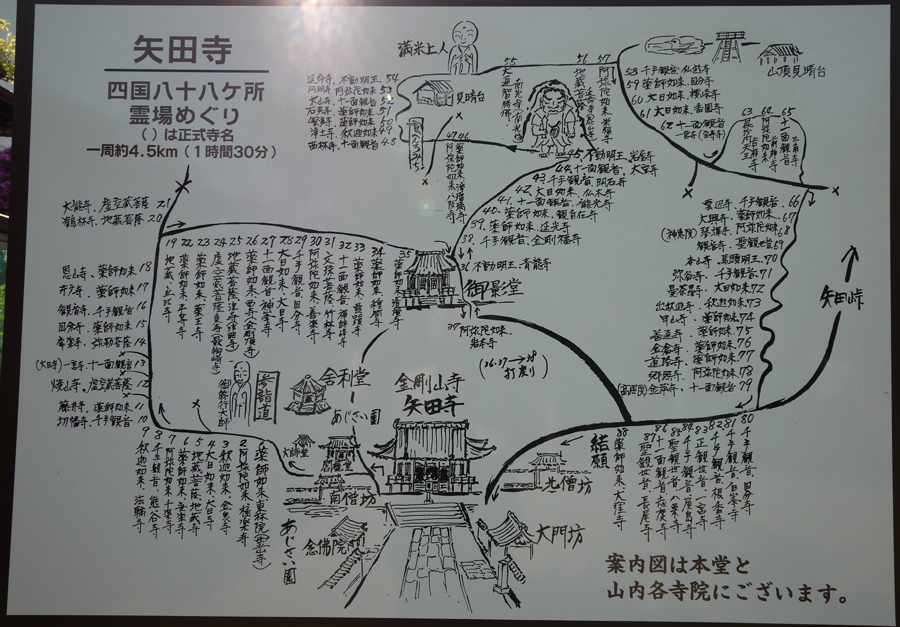 矢田寺
四国八十八ケ所
霊場めぐり
（ ）は正式寺名
一周約4.5km（1時間30分）
満米上人
見晴台
山頂見晴台
延命寺、不動明王 54
円明寺、阿弥陀如来 53
太山寺、十一面観音
石手寺、薬師如来 51
繁多寺、薬師如来 50
浄土寺、釈迦如来 49
西林寺、十一面観音 48
47
46
55 大通智勝佛、南光坊
56 地蔵菩薩、泰山寺
57 阿弥陀如来、栄福寺
58 千手観音、仙遊寺
59 薬師如来、国分寺
60 大日如来、横峰寺
61 大日如来、香園寺
62 十一面観音
63 毘沙門天、吉祥寺
64 阿弥陀如来、前神寺
65 十一面観音、三角寺
45. 不動明王、岩屋寺
44. 十一面観音、大宝寺
43. 千手観音、明石寺
42. 大日如来、仏木寺
41. 十一面観音、龍光寺
40. 薬師如来、観自在寺
39. 薬師如来、延光寺
38. 千手観音、金剛福寺
36 不動明王、青龍寺
御影堂
37 阿弥陀如来、岩本寺
（36・37→38
打戻り）
太龍寺、虚空蔵菩薩 21
鶴林寺、地蔵菩薩 20
恩山寺、薬師如来 18
井戸寺、薬師如来 17
観音寺、千手観音 16
国分寺、薬師如来 15
常楽寺、弥勒菩薩 14
（大日寺）一宮寺、十一面観音 13
焼山寺、虚空蔵菩薩 12
藤井寺、薬師如来 11
切幡寺、千手観音 10
19 地蔵、立江寺
22 薬師如来、平等寺
23 薬師如来、薬王寺
24 虚空蔵菩薩、東寺（最御崎寺）
25 地蔵菩薩、津寺（津照寺）
26 薬師如来、西寺（金剛頂寺）
27 十一面観音、神峯寺
28 大日如来、大日寺
29 千手観音、国分寺
30 阿弥陀如来、善楽寺
31 文殊菩薩、竹林寺
32 十一面観音、禅師峰寺
33 薬師如来、雪蹊寺
34 薬師如来、種間寺
35 薬師如来、清滝寺
雲辺寺、千手観音 66
大興寺、薬師如来 67
（神恵院）琴弾寺、阿弥陀如来 68
観音寺、聖観音 69
本山寺、馬頭明王 70
弥谷寺、千手観音 71
曼荼羅寺、大日如来 72
出釈迦寺、釈迦如来 73
甲山寺、薬師如来 74
善通寺、薬師如来 75
金倉寺、薬師如来 76
道隆寺、薬師如来 77
郷照寺、阿弥陀如来 78
（高照院）金華寺、十一面観音 79
矢田峠
80 千手観音、国分寺
81 千手観音、白峯寺
82 千手観音、根香寺
83 正観音、一宮寺
84 千手観音、屋島寺
85 聖観世音、八栗寺
86 十一面観音、志度寺
87 聖観世音、長尾寺
88 薬師如来、大窪寺
結願
舎利堂
金剛山寺
矢田寺
参詣道
あじさい園
大師堂
閻魔堂
南僧坊
北僧坊
念佛院
大門坊
あじさい園
9 釈迦如来、法輪寺
8 千手観音、熊谷寺
7 阿弥陀如来、十楽寺
6 薬師如来、安楽寺
5 地蔵菩薩、地蔵寺
4 大日如来、大日寺
3 釈迦如来、金泉寺
2 阿弥陀如来、極楽寺
薬師如来、東祭院（霊山寺）
案内図は本堂と
山内各寺院にございます。